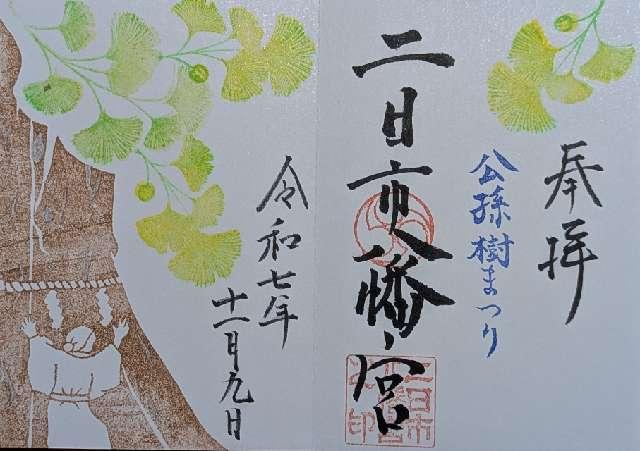 奉拝
公孫樹まつり
二日市八幡宮
令和七年
十一月九日